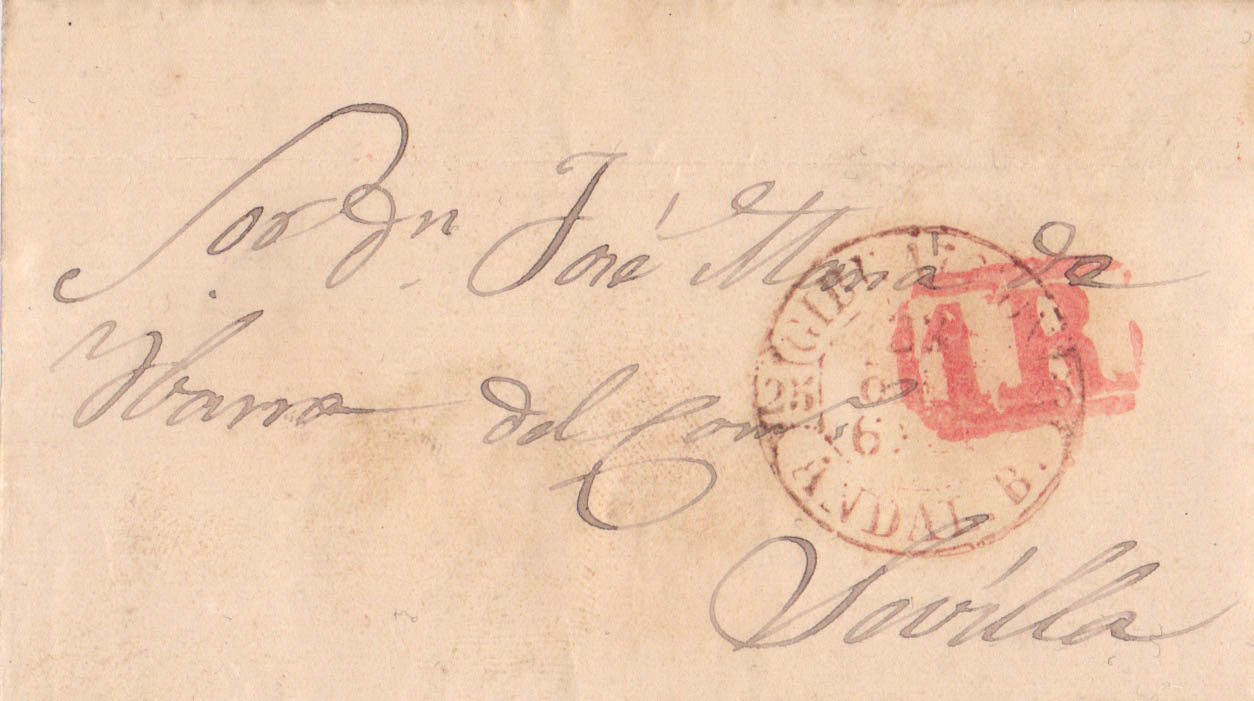 Sor. Dn José Maria de
Ybarra del Com.º
Sevilla
1R
GIBR
ANDAL. B.